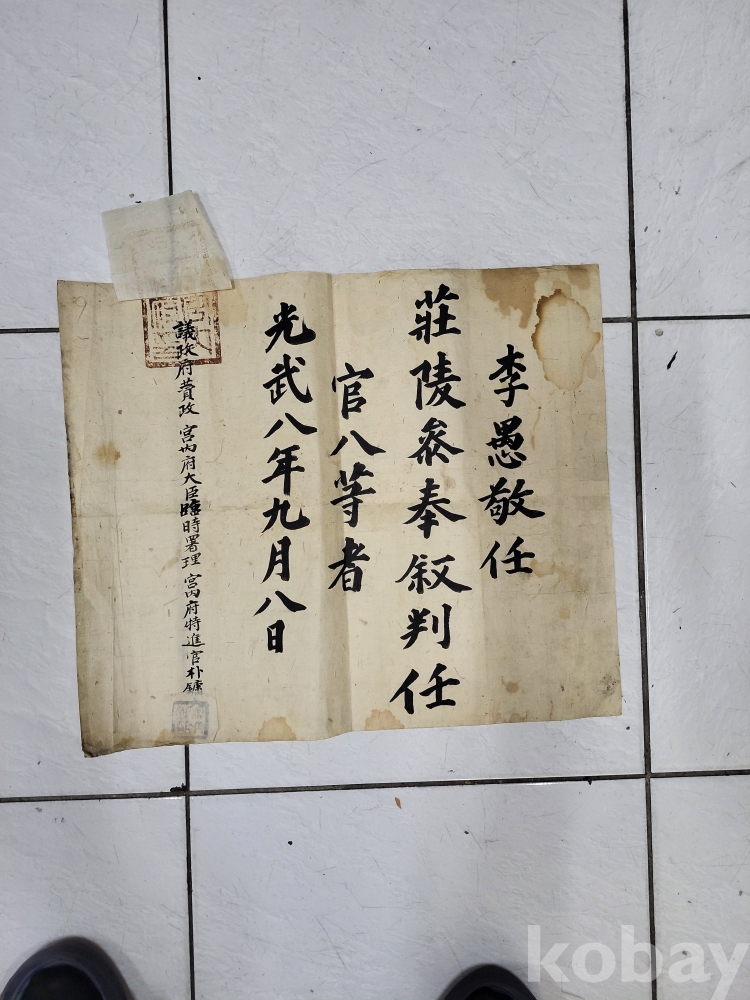 李愚敬任
莊陵叅奉叙判任
官八等者
光武八年九月八日
議政府贊政 宮內府大臣臨時署理 宮內府特進官朴鏞
kobay